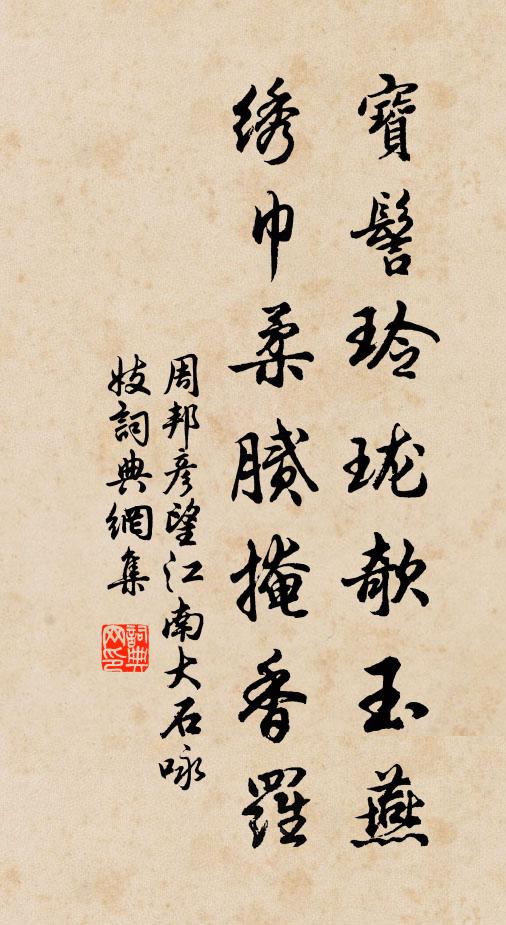 寶髻玲珑欹玉燕
绣巾柔膩掩香羅
周邦彦望江南大石咏
妓詞典網集
詞典網印